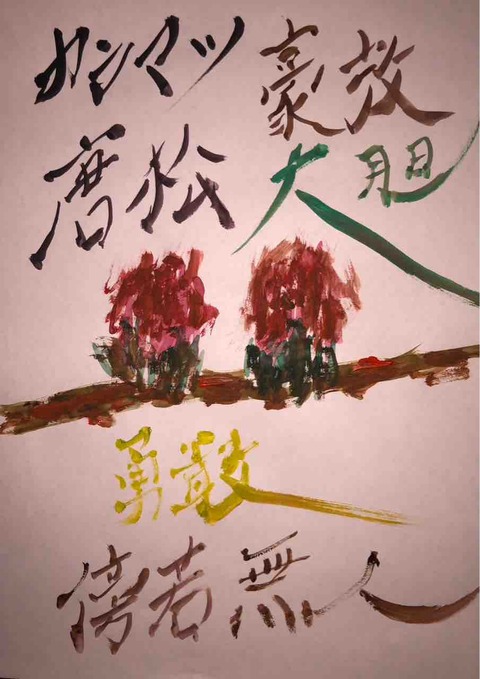 カンマツ 豪放
松 大胆
勇敢
傍若無人